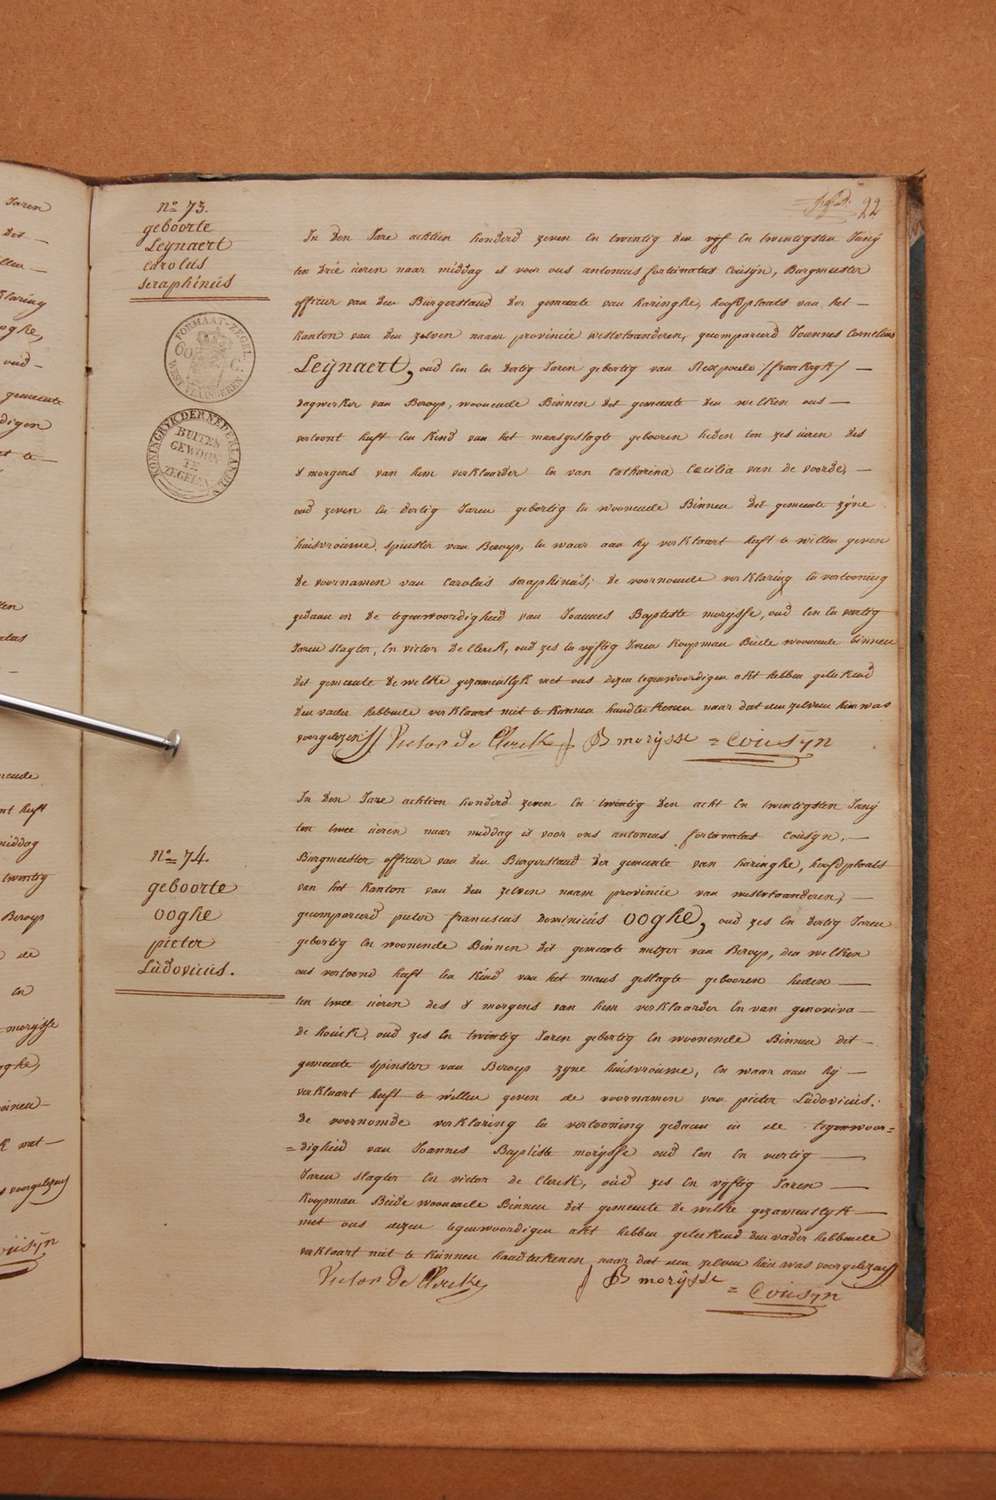 22
nº 73.
geboorte
Leijnaert
Carolus
seraphinus
FORMAAT-ZEGEL
WEST VLAANDEREN
KONINGRYK DER NEDERLANDEN
BUITEN
GEWOON
TE
ZEGELEN
In den Jare achtien honderd zeven En twentig den vyf En twentigsten Junij
ten drie ueren naar middag is voor ons antonius fortunatus Cousijn, Burgmeester
officier van den Burgerstand der gemeente van haringhe, hoofdplaats van het —
kanton van den zelven naam provincie westvlaanderen, gecompareerd Joannes Cornelius
Leijnaert, oud Een En dertig Jaren gebortig van Rexpoede /frankryk/ —
dagwerker van Beroep, woonende Binnen dit gemeente den welken ons —
vertoont heeft Een kind van het mansgeslagte gebooren heden ten zes ueren des
s morgens van hem verklaarder En van Catharina Cecilia van de voorde, —
oud zeven En dertig Jaren gebortig En woonende Binnen dit gemeente zyne
huisvrouwe, spinster van Beroep, En waar aan hy verklaart heeft te willen geven
de voornamen van Carolus seraphinus, de voornoemde verklaring En vertooning
gedaan in de tegenwoordigheid van Joannes Baptiste morysse, oud Een En vertig
Jaren slagter, En victor De Clerck, oud zes En vyftig Jaren koopman Beide woonende binnen
dit gemeente de welke gezamentlyk met ons dezen tegenwoordigen akt hebben geteekend
den vader hebbende verklaart niet te konnen handteekenen naar dat den zelven hem was
voorgelezen Victor De Clerck JB morÿsse = Cousijn
In den Jare achtien honderd zeven En twentig den acht En twentigsten Junij
ten twee ueren naar middag is voor ons antonius fortunatus Cousijn, —
Burgmeester officier van den Burgerstand der gemeente van haringhe, hoofdplaats
van het kanton van den zelven naam provincie van westvlaanderen, —
nº 74.
geboorte
ooghe
pieter
Ludovicus.
gecompareerd pieter franciscus Dominicus ooghe, oud zes En dertig Jaren
gebortig En woonende Binnen dit gemeente van Beroep, den welken
ons vertoond heeft Een kind van het mans geslagte gebooren heden —
ten twee ueren des s morgens van hem verklaarder En van genoviva —
de houck, oud zes En twentig Jaren gebortig En woonende Binnen dit —
gemeente spinster van Beroep zyne huisvrouwe, En waar aan hij —
verklaart heeft te willen geven de voornamen van pieter Ludovicus.
de voornomde verklaring En vertooning gedaan in de tegenwoor=
=digheid van Joannes Baptiste morysse oud Een En vertig —
Jaren slagter En victor de Clerck, oud zes En vyftig Jaren —
koopman Beide woonende Binnen dit gemeente de welke gezamentlyk —
met ons dezen tegenwoordigen akt hebben geteekend den vader hebbende
verklaart niet te kunnen handteekenen naar dat den zelven hem was voorgelezen
Victor De Clercke JB morÿsse = Cousijn